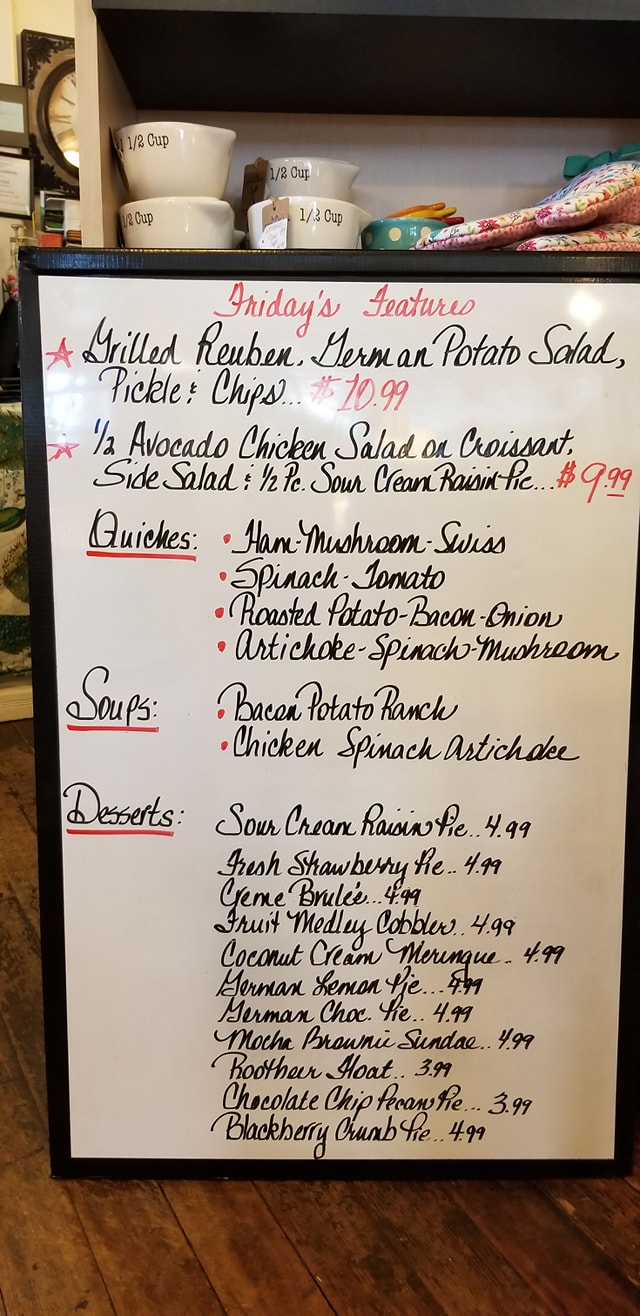 1/2 Cup
1/2 Cup
1/2 Cup
1/2 Cup
Friday's Features
Grilled Reuben, German Potato Salad,
Pickle & Chips... $10.99
1/2 Avocado Chicken Salad on Croissant,
Side Salad & 1/2 Pc. Sour Cream Raisin Pie... $9.99
Quiches: • Ham-Mushroom-Swiss
• Spinach-Tomato
• Roasted Potato-Bacon-Onion
• Artichoke-Spinach-Mushroom
Soups: • Bacon Potato Ranch
• Chicken Spinach Artichoke
Desserts: Sour Cream Raisin Pie.. 4.99
Fresh Strawberry Pie.. 4.99
Creme Brulée... 4.99
Fruit Medley Cobbler.. 4.99
Coconut Cream Meringue.. 4.99
German Lemon Pie... 4.99
German Choc. Pie.. 4.99
Mocha Brownie Sundae.. 4.99
Rootbeer Float.. 3.99
Chocolate Chip Pecan Pie... 3.99
Blackberry Crumb Pie.. 4.99